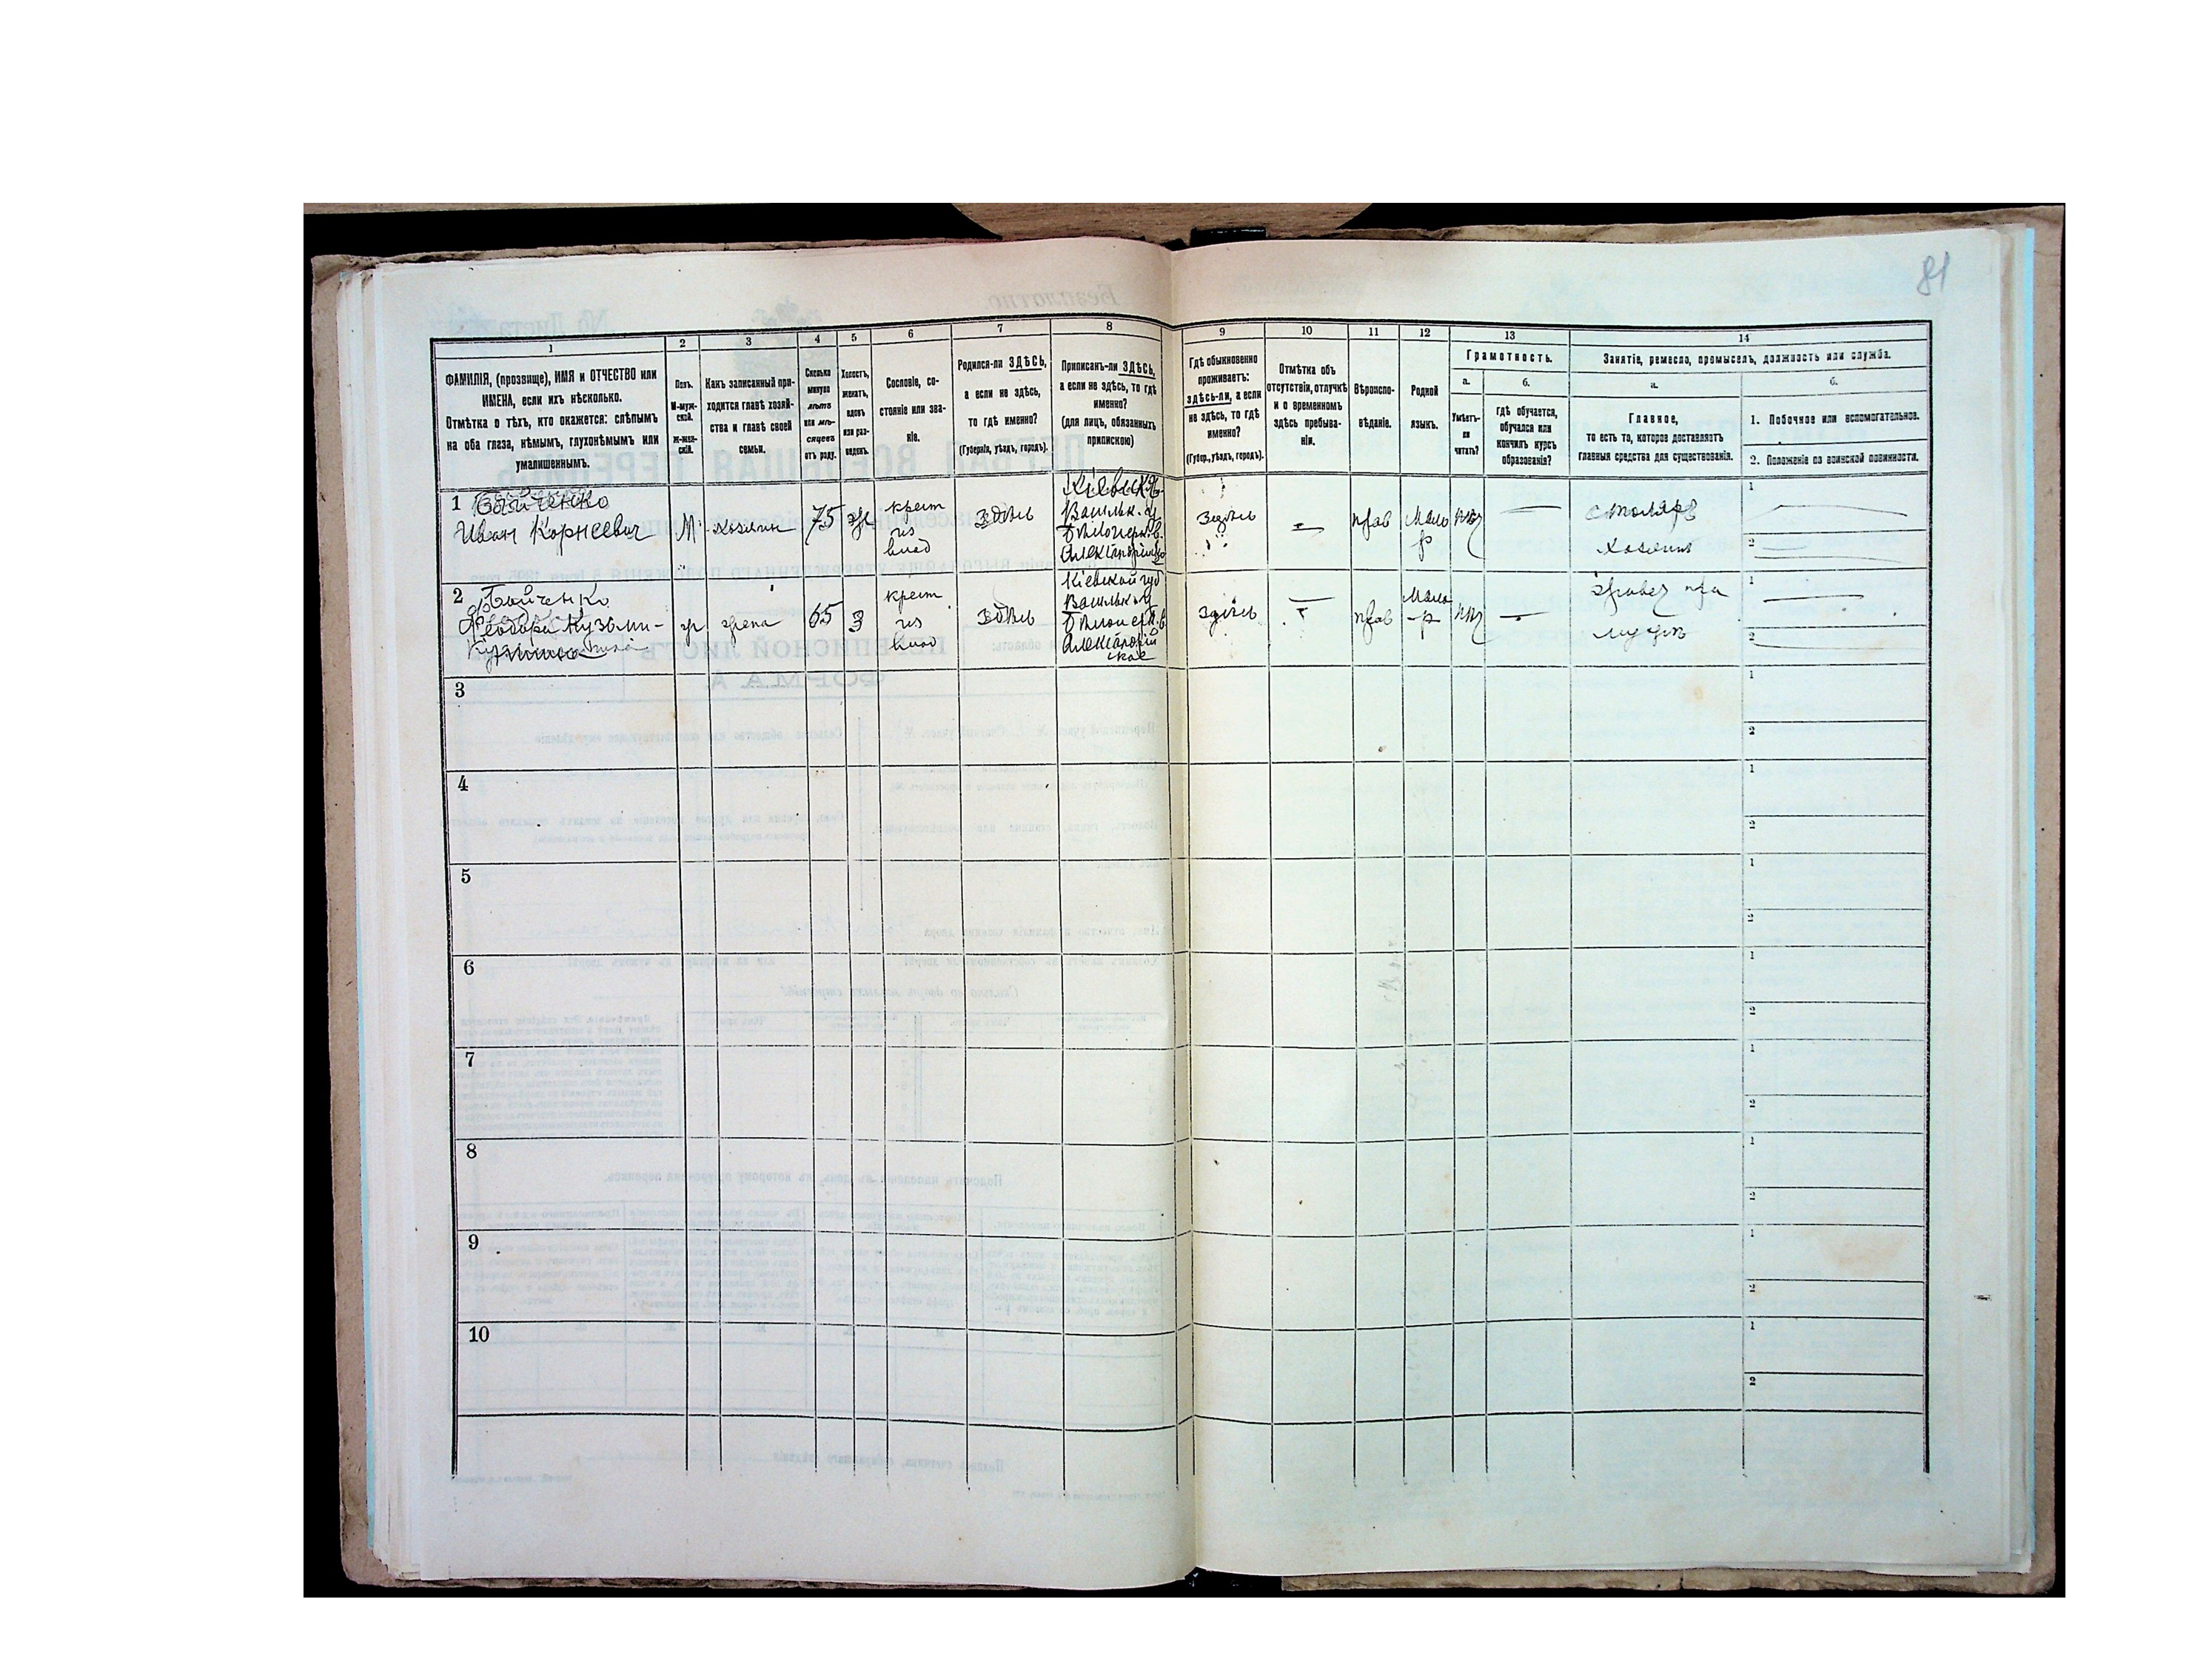 81
1
ФАМИЛІЯ, (прозвище), ИМЯ и ОТЧЕСТВО или
ИМЕНА, если ихъ нѣсколько.
Отмѣтка о тѣхъ, кто окажется: слѣпымъ
на оба глаза, нѣмымъ, глухонѣмымъ или
умалишеннымъ.
2
Полъ.
М-муж-
ской.
Ж-жен-
скій.
3
Какъ записанный при-
ходится главѣ хозяй-
ства и главѣ своей
семьи.
4
Сколько
минуло
лѣтъ
или мѣ-
сяцевъ
отъ роду.
5
Холостъ,
женатъ,
вдовъ
или раз-
веденъ.
6
Сословіе, со-
стояніе или зва-
ніе.
7
Родился-ли ЗДѢСЬ,
а если не здѣсь,
то гдѣ именно?
(Губернія, уѣздъ, городъ).
8
Приписанъ-ли ЗДѢСЬ,
а если не здѣсь, то гдѣ
именно?
(для лицъ, обязанныхъ
припискою)
9
Гдѣ обыкновенно
проживаетъ:
здѣсь-ли, а если
не здѣсь, то гдѣ
именно?
(Губер., уѣздъ, городъ).
10
Отмѣтка объ
отсутствіи, отлучкѣ
и о временномъ
здѣсь пребыва-
ніи.
11
Вѣроиспо-
вѣданіе.
12
Родной
языкъ.
13
Грамотность.
а.
Умѣетъ-
ли
читать?
б.
гдѣ обучается,
обучался или
кончилъ курсъ
образованія?
14
Занятіе, ремесло, промыселъ, должность или служба.
а.
Главное,
то есть то, которое доставляетъ
главныя средства для существованія.
б.
1. Побочное или вспомогательное.
2. Положеніе по воинской повинности.
1
Иван Корнеевич
М
хозяин
75
ж
крест
из
влад
здѣсь
Васильк. у
здѣсь
прав
мало
р
столяръ
хозяин
1
2
2
Бойченко
ж
жена
65
З
крест
из
влад
здѣсь
Кіевской губ
Васильк у
ское
здѣсь
прав
мало
р
при
мужѣ
1
2
3
1
2
4
1
2
5
1
2
6
1
2
7
1
2
8
1
2
9
1
2
10
1
2